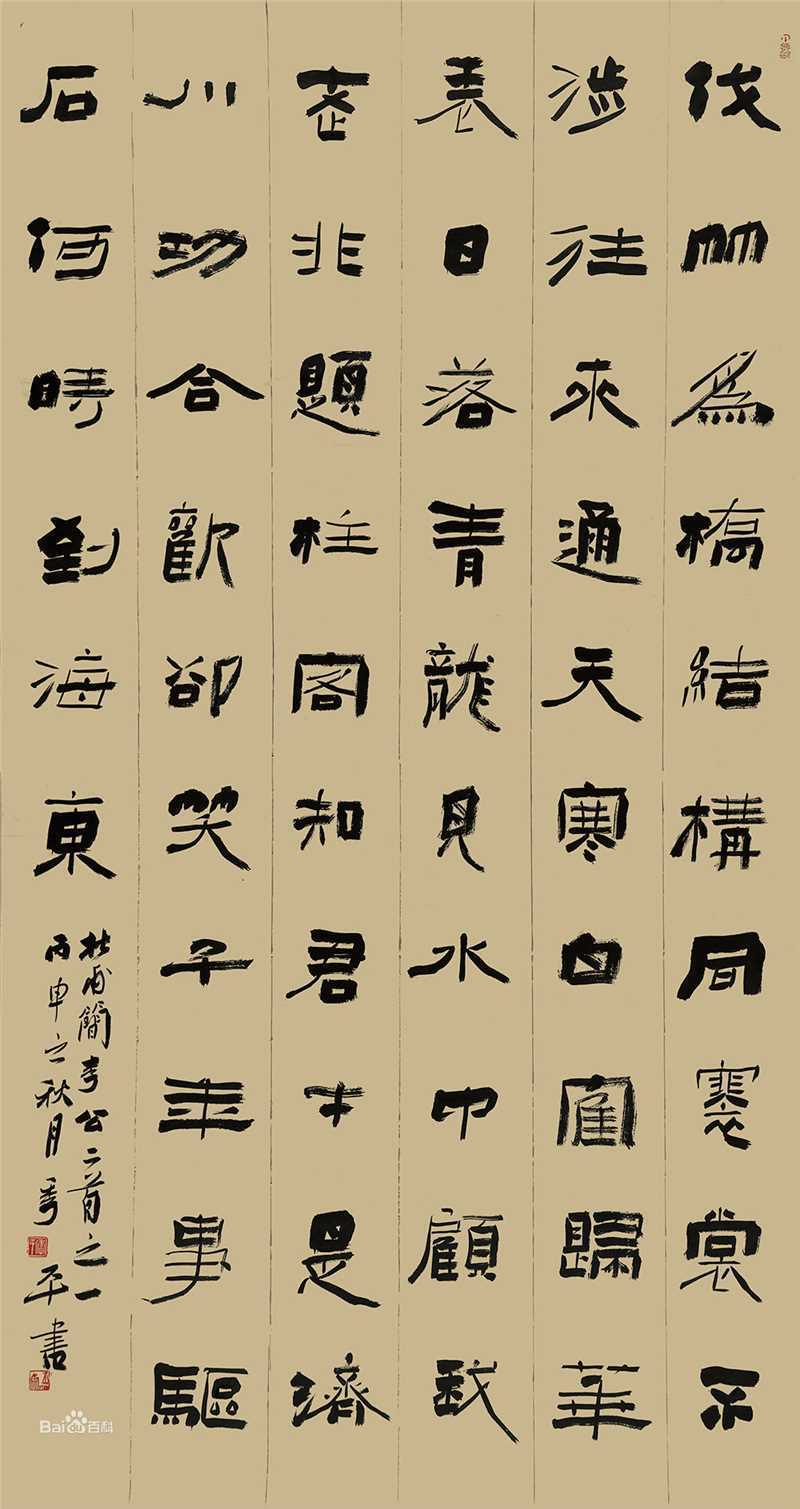 伐竹為橋結構同褰裳不
涉往來通天寒白寉歸華
表日落青龍見水中顧我
老非題柱客知君才是濟
川功合歡卻笑千年事驅
石何時到海東
杜甫簡李公二首之一
丙申之秋月 平書
Baidu百科